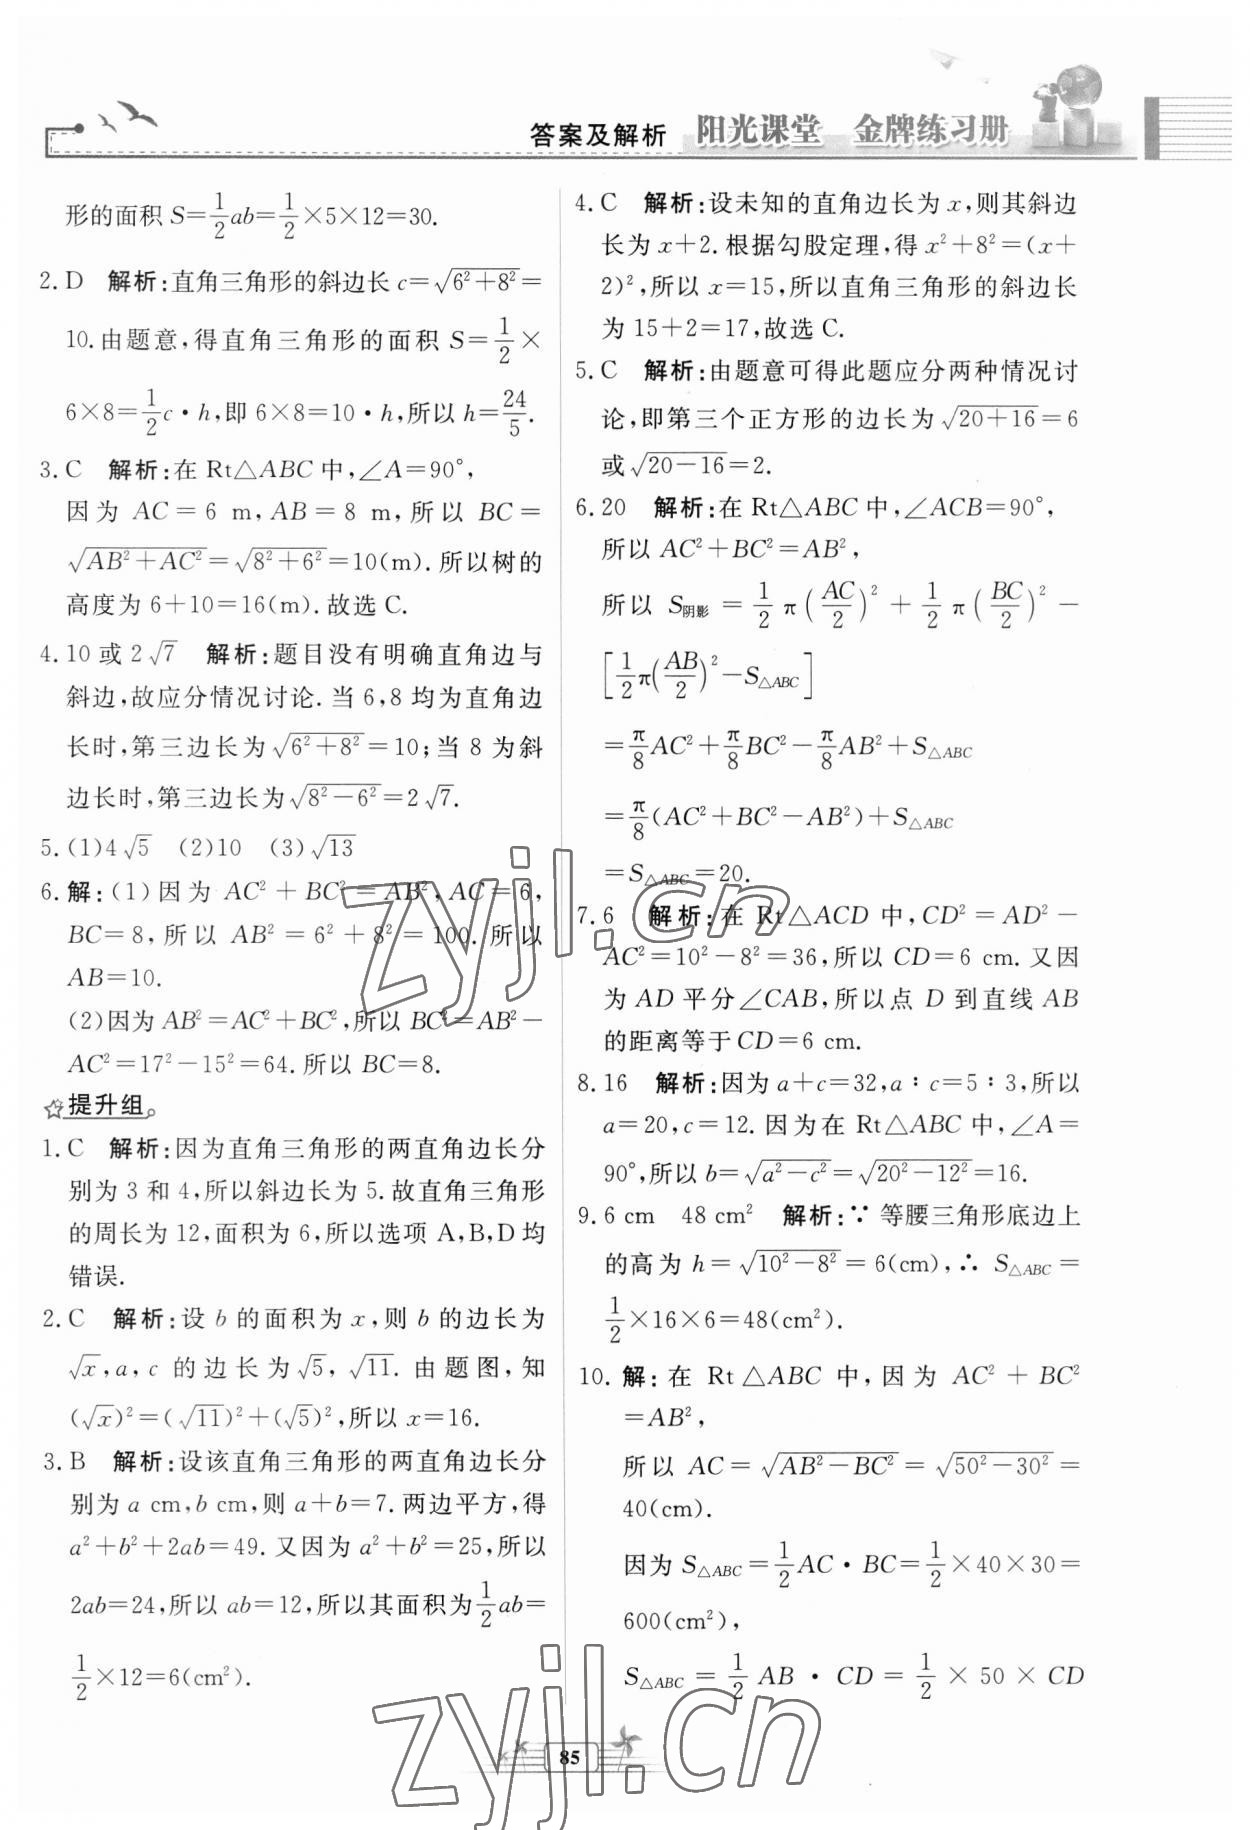 答案及解析 阳光课堂 金牌练习册
形的面积 S=\frac{1}{2}ab=\frac{1}{2}×5×12=30.
2. D 解析:直角三角形的斜边长 c=\sqrt{6²+8²}=
10.由题意,得直角三角形的面积 S=\frac{1}{2}×
6×8=\frac{1}{2}c·h,即 6×8=10·h,所以 h=\frac{24}{5}.
3. C 解析:在 Rt△ABC 中,∠A=90°,
因为 AC=6 m,AB=8 m,所以 BC=
\sqrt{AB²+AC²}=\sqrt{8²+6²}=10(m).所以树的
高度为 6+10=16(m).故选 C.
4. 10 或 2\sqrt{7} 解析:题目没有明确直角边与
斜边,故应分情况讨论.当 6,8 均为直角边
长时,第三边长为\sqrt{6²+8²}=10;当 8 为斜
边长时,第三边长为\sqrt{8²-6²}=2\sqrt{7}.
5. (1)4\sqrt{5} (2)10 (3)\sqrt{13}
6. 解:(1)因为 AC²+BC²=AB²,AC=6,
BC=8,所以 AB²=6²+8²=100.所以
AB=10.
(2)因为 AB²=AC²+BC²,所以 BC²=AB²-
AC²=17²-15²=64.所以 BC=8.
提升组
1. C 解析:因为直角三角形的两直角边长分
别为 3 和 4,所以斜边长为 5.故直角三角形
的周长为 12,面积为 6,所以选项 A,B,D 均
错误.
2. C 解析:设 b 的面积为 x,则 b 的边长为
\sqrt{x},a,c 的边长为\sqrt{5},\sqrt{11}.由题图,知
(\sqrt{x})²=(\sqrt{11})²+(\sqrt{5})²,所以 x=16.
3. B 解析:设该直角三角形的两直角边长分
别为 a cm,b cm,则 a+b=7.两边平方,得
a²+b²+2ab=49.又因为 a²+b²=25,所以
2ab=24,所以 ab=12,所以其面积为\frac{1}{2}ab=
\frac{1}{2}×12=6(cm²).
4. C 解析:设未知的直角边长为 x,则其斜边
长为 x+2.根据勾股定理,得 x²+8²=(x+
2)²,所以 x=15,所以直角三角形的斜边长
为 15+2=17,故选 C.
5. C 解析:由题意可得此题应分两种情况讨
论,即第三个正方形的边长为\sqrt{20+16}=6
或\sqrt{20-16}=2.
6. 20 解析:在 Rt△ABC 中,∠ACB=90°,
所以 AC²+BC²=AB²,
所以 S阴影=\frac{1}{2}π(\frac{AC}{2})²+\frac{1}{2}π(\frac{BC}{2})²-
[\frac{1}{2}π(\frac{AB}{2})²-S△ABC]
=\frac{π}{8}AC²+\frac{π}{8}BC²-\frac{π}{8}AB²+S△ABC
=\frac{π}{8}(AC²+BC²-AB²)+S△ABC
=S△ABC=20.
7. 6 解析:在 Rt△ACD 中,CD²=AD²-
AC²=10²-8²=36,所以 CD=6 cm.又因
为 AD 平分∠CAB,所以点 D 到直线 AB
的距离等于 CD=6 cm.
8. 16 解析:因为 a+c=32,a∶c=5∶3,所以
a=20,c=12.因为在 Rt△ABC 中,∠A=
90°,所以 b=\sqrt{a²-c²}=\sqrt{20²-12²}=16.
9. 6 cm 48 cm² 解析:∵等腰三角形底边上
的高为 h=\sqrt{10²-8²}=6(cm),∴S△ABC=
\frac{1}{2}×16×6=48(cm²).
10. 解:在 Rt△ABC 中,因为 AC²+BC²
=AB²,
所以 AC=\sqrt{AB²-BC²}=\sqrt{50²-30²}=
40(cm).
因为 S△ABC=\frac{1}{2}AC·BC=\frac{1}{2}×40×30=
600(cm²),
S△ABC=\frac{1}{2}AB·CD=\frac{1}{2}×50×CD
85
zyjl.cn
zyjl.cn